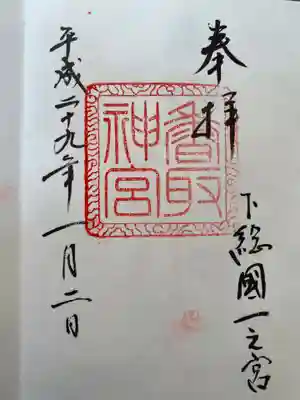 奉拝
下総國一之宮
香取神宮
平成二十九年一月二日